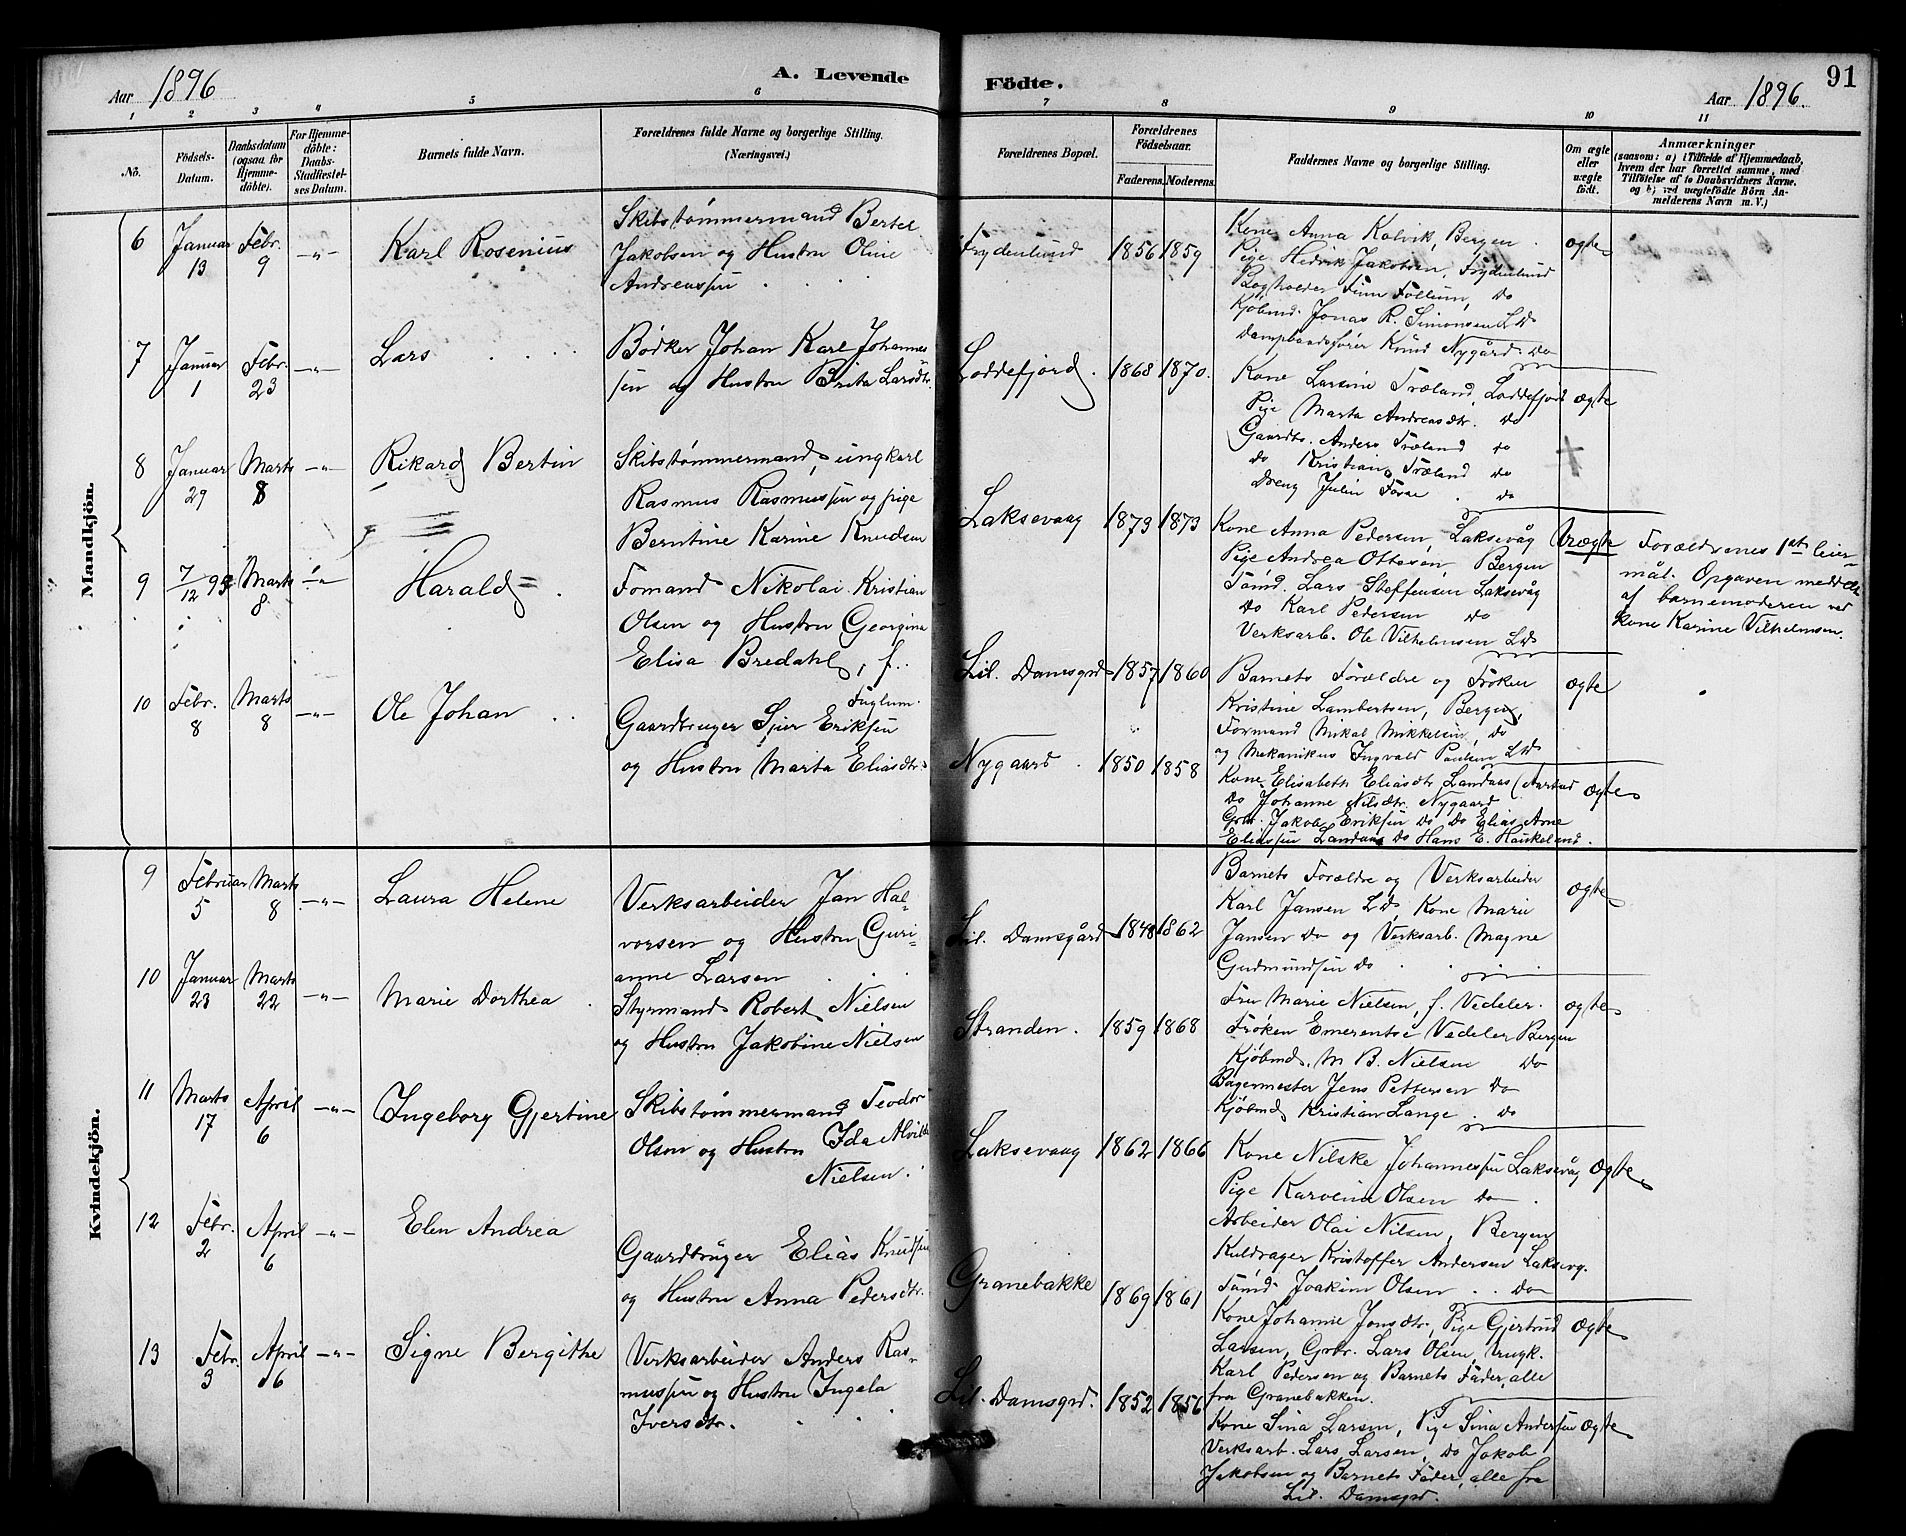 Aar 1896
A. Levende
Födte.
Aar 1896.
91
1 2 3 4 5 6 7 8 9 10 11
No.
Födsels-
Datum.
Daabsdatum
(ogsaa for
Hjemme-
döbte).
For Hjemme-
döbte:
Daabs-
Stadfæstel-
ses Datum.
Barnets fulde Navn.
Forældrenes fulde Navne og borgerlige Stilling.
(Næringsvei.)
Forældrenes Bopæl.
Forældrenes
Födselsaar.
Faderens. Moderens.
Faddernes Navne og borgerlige Stilling.
Om ægte
eller
uægte
födt.
Anmærkninger
(saasom: a) i Tilfælde af Hjemmedaab,
hvem der har forrettet samme, med
Tilföielse af to Daabsvidners Navne,
og b) ved uægtefödte Börn An-
melderens Navn m. V.)
Mandkjön.
6 Januar 13 Febr. 9 -"- Karl Rosenius
Skibstømmermand Bertel
Jakobsen og Hustru Oline
Andreassen
Frydenlund 1856 1859
Kone Anna Kalvik, Bergen
Pige Hedvik Jakobsen, Frydenlund
Bogholder Finn Follum, do
Kjøbmd. Jonas R. Simonsen Ld
Dampbaadsfører Knud Nygård do
ægte
7 Januar 1 Febr. 23 -"- Lars
Bødker Johan Karl Johannes-
sen og Hustru Brita Larsdtr.
Loddefjord. 1868 1870.
Kone Larsine Træland, Loddefjord
Pige Marta Andreasdtr. do
Gaardbr. Anders Træland do
do Kristian Træland do
Dreng Julin do
ægte
8 Januar 29 Marts 8 -"- Rikard Bertin
Skibstømmermand, ungkarl
Rasmus Rasmussen og pige
Berntine Karine Knudsen
Laksevaag 1873 1873
Kone Anna Pedersen, Laksevåg
Pige Andrea Ottesen, Bergen
Tømd. Lars Steffensen Laksevåg
do Karl Pedersen do
Verksarb. Ole Vilhelmsen Ld
Uægte
Forældrenes 1st leier-
mål. Opgaven meddelt
af barnemoderen ved
kone Karine Vilhelmsen.
9 7/12 95 Marts 8 -"- Harald
Formand Nikolai Kristian
Olsen og Hustru Georgina
Elisa Bredahl, f.
Fuglum.
Lil. Damsgrd 1857 1860
Barnets Forældre og Frøken
Kristine Lambertsen, Bergen,
Formand Mikal Mikkelsen, do
og Mekanikus Ingvald Paulsen Ld
ægte
10 Febr. 8 Marts 8 -"- Ole Johan
Gaardbruger Sjur Eriksen
og Hustru Marta Eliasdtr.
Nygaard 1850 1858
Kone Elisabeth Eliasdtr. Landaas (Aarstad
do Johanne Nilsdtr. Nygaard
Grbr. Jakob Eriksen do do Elias Arne
Eliassen Landaas do Hans E. Haukeland.
ægte
Kvindekjön.
9 Februar 5 Marts 8 -"- Laura Helene
Verksarbeider Jan Hal-
vorsen og Hustru Guri-
anne Larsen
Lil. Damsgård 1848 1862
Barnets Forældre og Verksarbeider
Karl Jansen Ld, Kone Marie
Jansen do og Verksarb. Magne
Gudmundsen do
ægte
10 Januar 23 Marts 22 -"- Marie Dorthea
Styrmand Robert Nielsen
og Hustru Jakobine Nielsen
Stranden. 1859 1868
Fru Marie Nielsen, f. Vedeler.
Frøken Emerentse Vedeler Bergen
Kjøbmd. M B. Nielsen do
Bagermester Jens Pettersen do
Kjøbmd Kristian Lange do
ægte
11 Marts 17 April 6 -"- Ingeborg Gjertine
Skibstømmermand Teodor
Olsen og Hustru Ida Alvilde
Nielsen.
Laksevaag 1862 1866
Kone Nilske Johannessen Laksevåg
Pige Karoline Olsen do
Arbeider Olai Nilsen, Bergen
Kuldrager Kristoffer Andersen Laksevg.
Tømd Joakim Olsen do
ægte
12 Febr. 2 April 6 -"- Elen Andrea
Gaardbruger Elias Knudsen
og Hustru Anna Pedersdtr.
Granebakke 1869 1861
Kone Johanne Jonsdtr, Pige Gjertrud
Larsen, Grbr. Lars Olsen, Ungk.
Karl Pedersen og Barnets Fader, alle
fra Granebakken.
ægte
13 Febr. 3 April 16 -"- Signe Bergithe
Verksarbeider Anders Ras-
mussen og Hustru Ingela
Iversdtr.
Lil. Damsgrd. 1852 1856
Kone Sina Larsen, Pige Sina Andersen
Verksarb. Lars Larsen, do Jakob
Jakobsen og Barnets Fader, alle fra
Lil. Damsgrd.
ægte